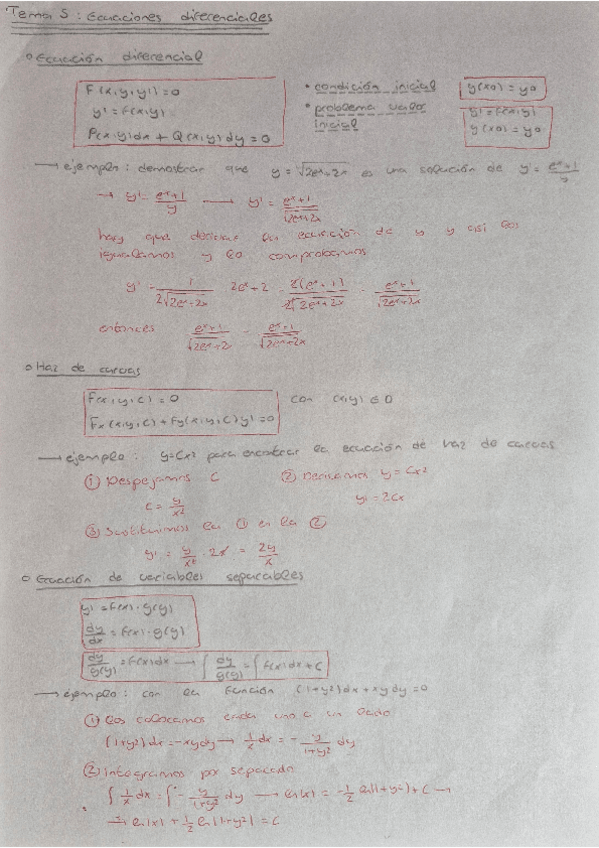 Tema 5: Ecuaciones diferenciales
Ecuación diferencial
F(x,y,y')=0
y'=f(x,y)
P(x,y)dx + Q(x,y)dy = 0
• condición inicial y(x0) = y0
• problema valor inicial y'=f(x,y) y(x0) = y0
→ ejemplo: demostrar que y = √2eˣ+2x es una solución de y' = eˣ+1/y
→ y' = eˣ+1/y → y' = eˣ+1/√2eˣ+2x
hay que derivar la ecuación de y y así los
igualamos y lo comprobamos
y' = 1/2√2eˣ+2x · 2eˣ+2 = 2(eˣ+1)/2√2eˣ+2x = eˣ+1/√2eˣ+2x
entonces eˣ+1/√2eˣ+2x = eˣ+1/√2eˣ+2x
Haz de curvas
F(x,y,C) = 0 con (x,y) ∈ D
Fx(x,y,C) + Fy(x,y,C)y' = 0
→ ejemplo: y=Cx² para encontrar la ecuación de haz de curvas
① Despejamos C ② Derivamos y = Cx²
C = y/x² y' = 2Cx
③ Sustituimos la ① en la ②
y' = y/x² · 2x = 2y/x
Ecuación de variables separables
y' = f(x)·g(y)
dy/dx = f(x)·g(y)
dy/g(y) = f(x)dx → ∫ dy/g(y) = ∫ f(x)dx + C
→ ejemplo: con la función (1+y²)dx + xydy = 0
① los colocamos cada uno a un lado
(1+y²)dx = -xydy → 1/x dx = - y/1+y² dy
② integramos por separado
∫ 1/x dx = ∫ - y/1+y² dy → ln|x| = -1/2 ln|1+y²| + C →
→ ln|x| + 1/2 ln|1+y²| = C